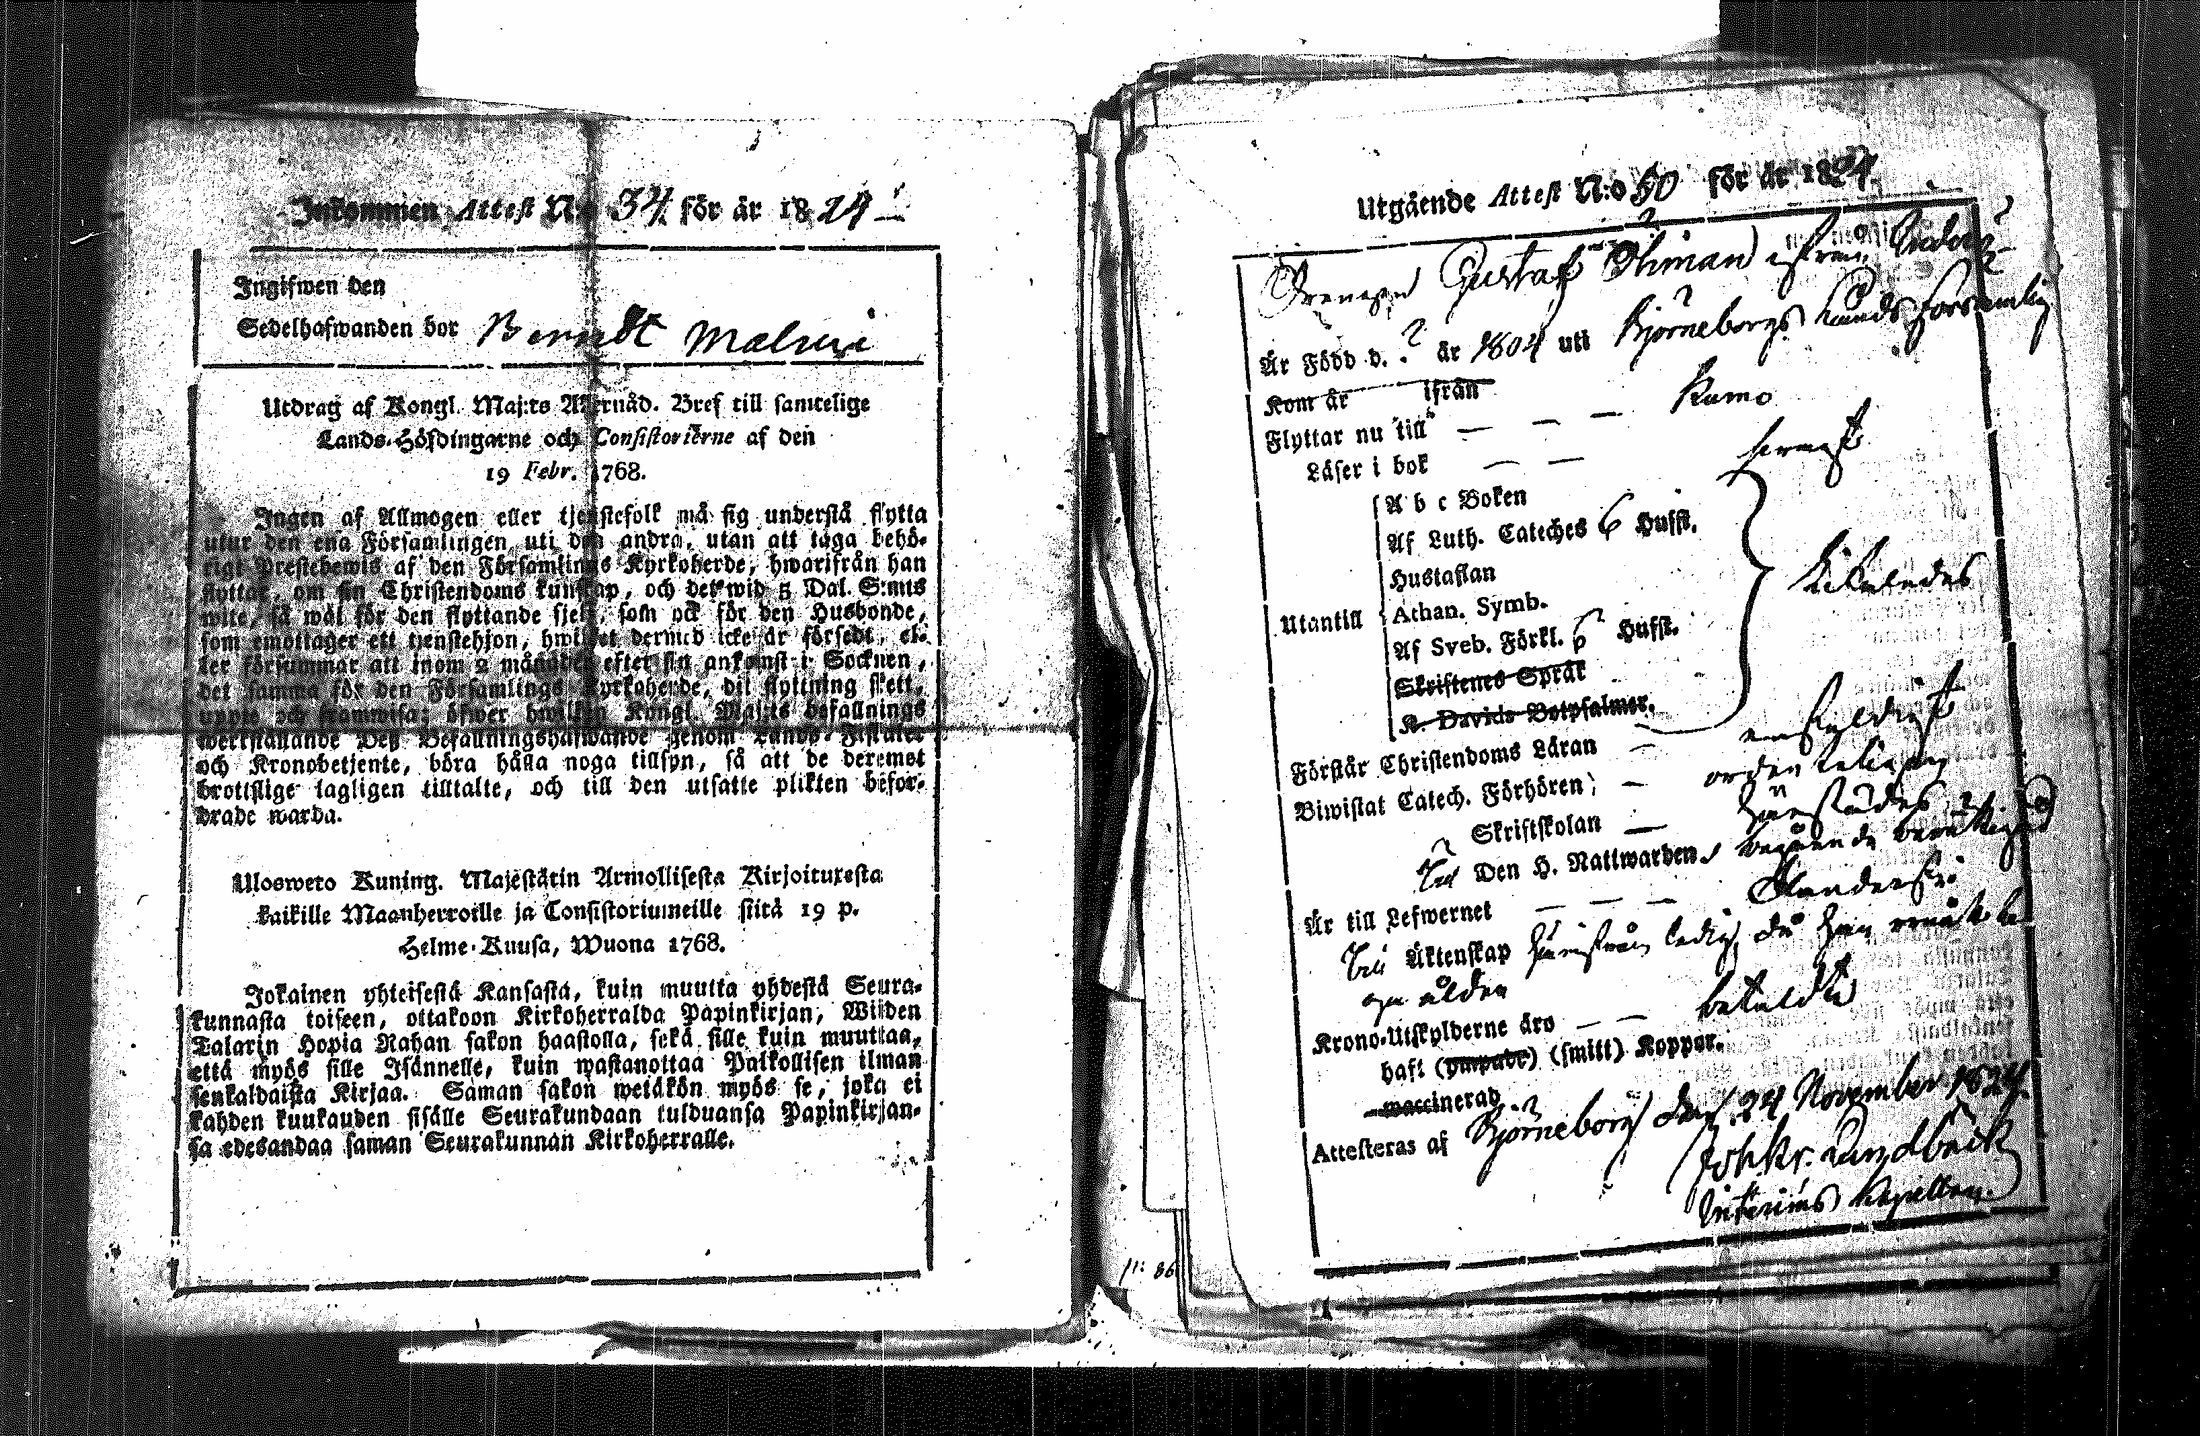 Inkommen Attest N:o 34 för år 1824
Ingifwen den
Sedelhafwanden bor Berndt
Utdrag af Kongl. Maj:ts Allernåd. Bref till samtelige
Lands-Höfdingarne och Consistorierne af den
19 Febr. 1768.
Ingen af Allmogen eller tjenstefolk må sig understå flytta
utur den ena Församlingen uti den andra, utan att taga behö-
rigt Prestebewis af den Församlings Kyrkoherde, hwarifrån han
flyttar, om sin Christendoms kunskap, och det wid 5 Dal. S:mts
wite, så wäl för den flyttande sjelf, som ock för den Husbonde,
som emottager ett tjenstehjon, hwilket dermed icke är försedt, el-
ler försummar att inom 2 månader efter sin ankomst i Socknen,
det samma för den Församlings Kyrkoherde, dit flyttning skett,
uppte och framwisa; öfwer hwilken Kongl. Maj:ts befallnings
werkställande Deß Befallningshafwande genom Lands-Fiskaler
och Kronobetjente, böra hålla noga tillsyn, så att de deremot
brottslige lagligen tilltalte, och till den utsatte plikten beför-
drade warda.
Uloswero Kuning. Majestätin Armollisesta Kirjoituxesta
kaikille Maanherroille ja Consistoriumeille siitä 19 p.
Helme-Kuusa, Wuona 1768.
Jokainen yhteisestä Kansasta, kuin muutta yhdestä Seura-
kunnasta toiseen, ottakoon Kirkoherralda Papinkirjan, Wiiden
Talarin Hopia Rahan sakon haastolla, sekä sille kuin muuttaa,
että myös sille Isännelle, kuin wastanottaa Palkollisen ilman
senkaldaista Kirjaa. Saman sakon wetäkön myös se, joka ei
kahden kuukauden sisälle Seurakundaan tulduansa Papinkirjan-
sa edesandaa saman Seurakunnan Kirkoherralle.
Utgående Attest N:o 50 för år 1824
Drengen Gustaf Öhman ifrån
Är Född d. ? år 1804 uti Björneborgs Lands Församling
Kom år ifrån
Flyttar nu till — — — Kumo
Läser i bok — —
Utantill
A b c Boken
Af Luth. Cateches 6 Hufst.
Hustaflan
Athan. Symb.
Af Sveb. Förkl. 6 Hufst.
Skriftenes Språk
K. Davids Botpsalmer.
likaledes
Förstår Christendoms Läran — enfaldigt
Biwistat Catech. Förhören — ordenteligen
Skriftskolan — härstädes
Till Den H. Nattwarden
Är till Lefwernet — — —
Till Äktenskap härifrån ledig, då han
åldern
Krono-Utskylderne äro — — betaldte
haft (ympade) (smitt) Koppor.
waccinerad
Attesteras af Björneborg den 24 November 1824.
Joh. Kr. Lundbäck
Interims Kapellan.
p: 86